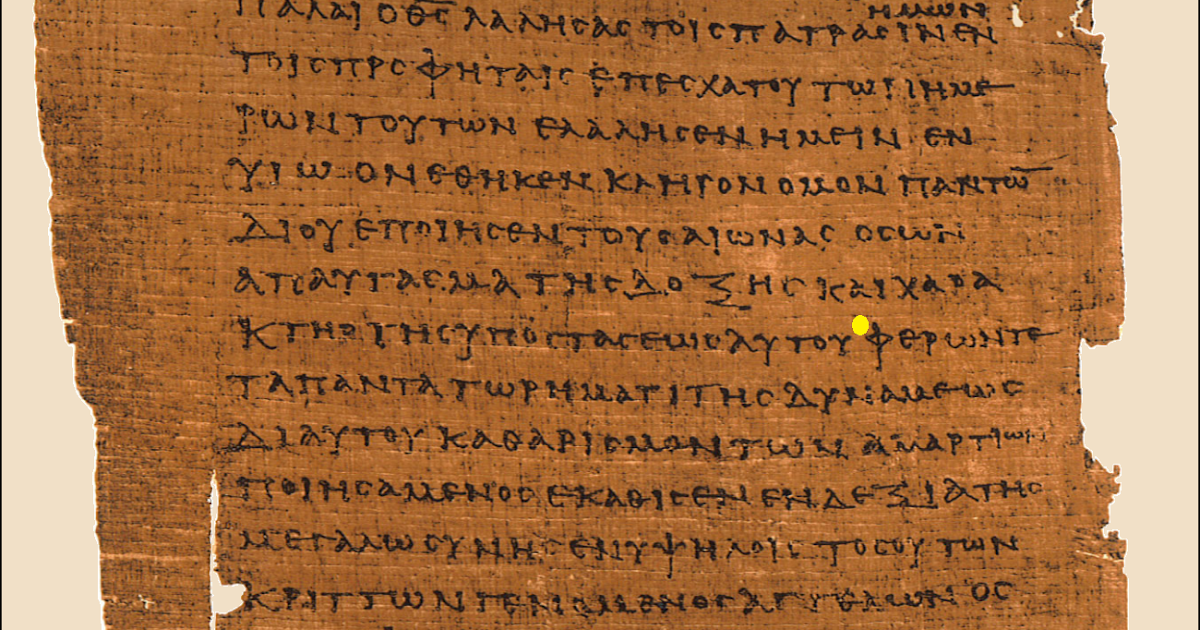 ημων
παλαι ο θ̅ς̅ λαλησας τοις πατρασιν εν
τοις προφηταις επ εσχατου των ημε
ρων τουτων ελαλησεν ημειν εν
υιω ον εθηκεν κληρονομον παντω̅
δι ου εποιησεν τους αιωνας ος ων
απαυγασμα της δοξης και χαρα
κτηρ της υποστασεως αυτου φερων τε
τα παντα τω ρηματι της δυναμεως
δι αυτου καθαρισμον των αμαρτιων
ποιησαμενος εκαθισεν εν δεξια της
μεγαλωσυνης εν υψηλοις τοσουτων
κριττων γενομενος αγγελων ος